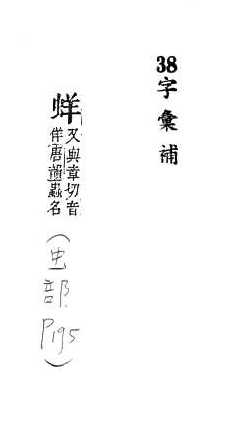 38字彙補
蛘又與章切音
佯唐韻蟲名
(虫部
P195)